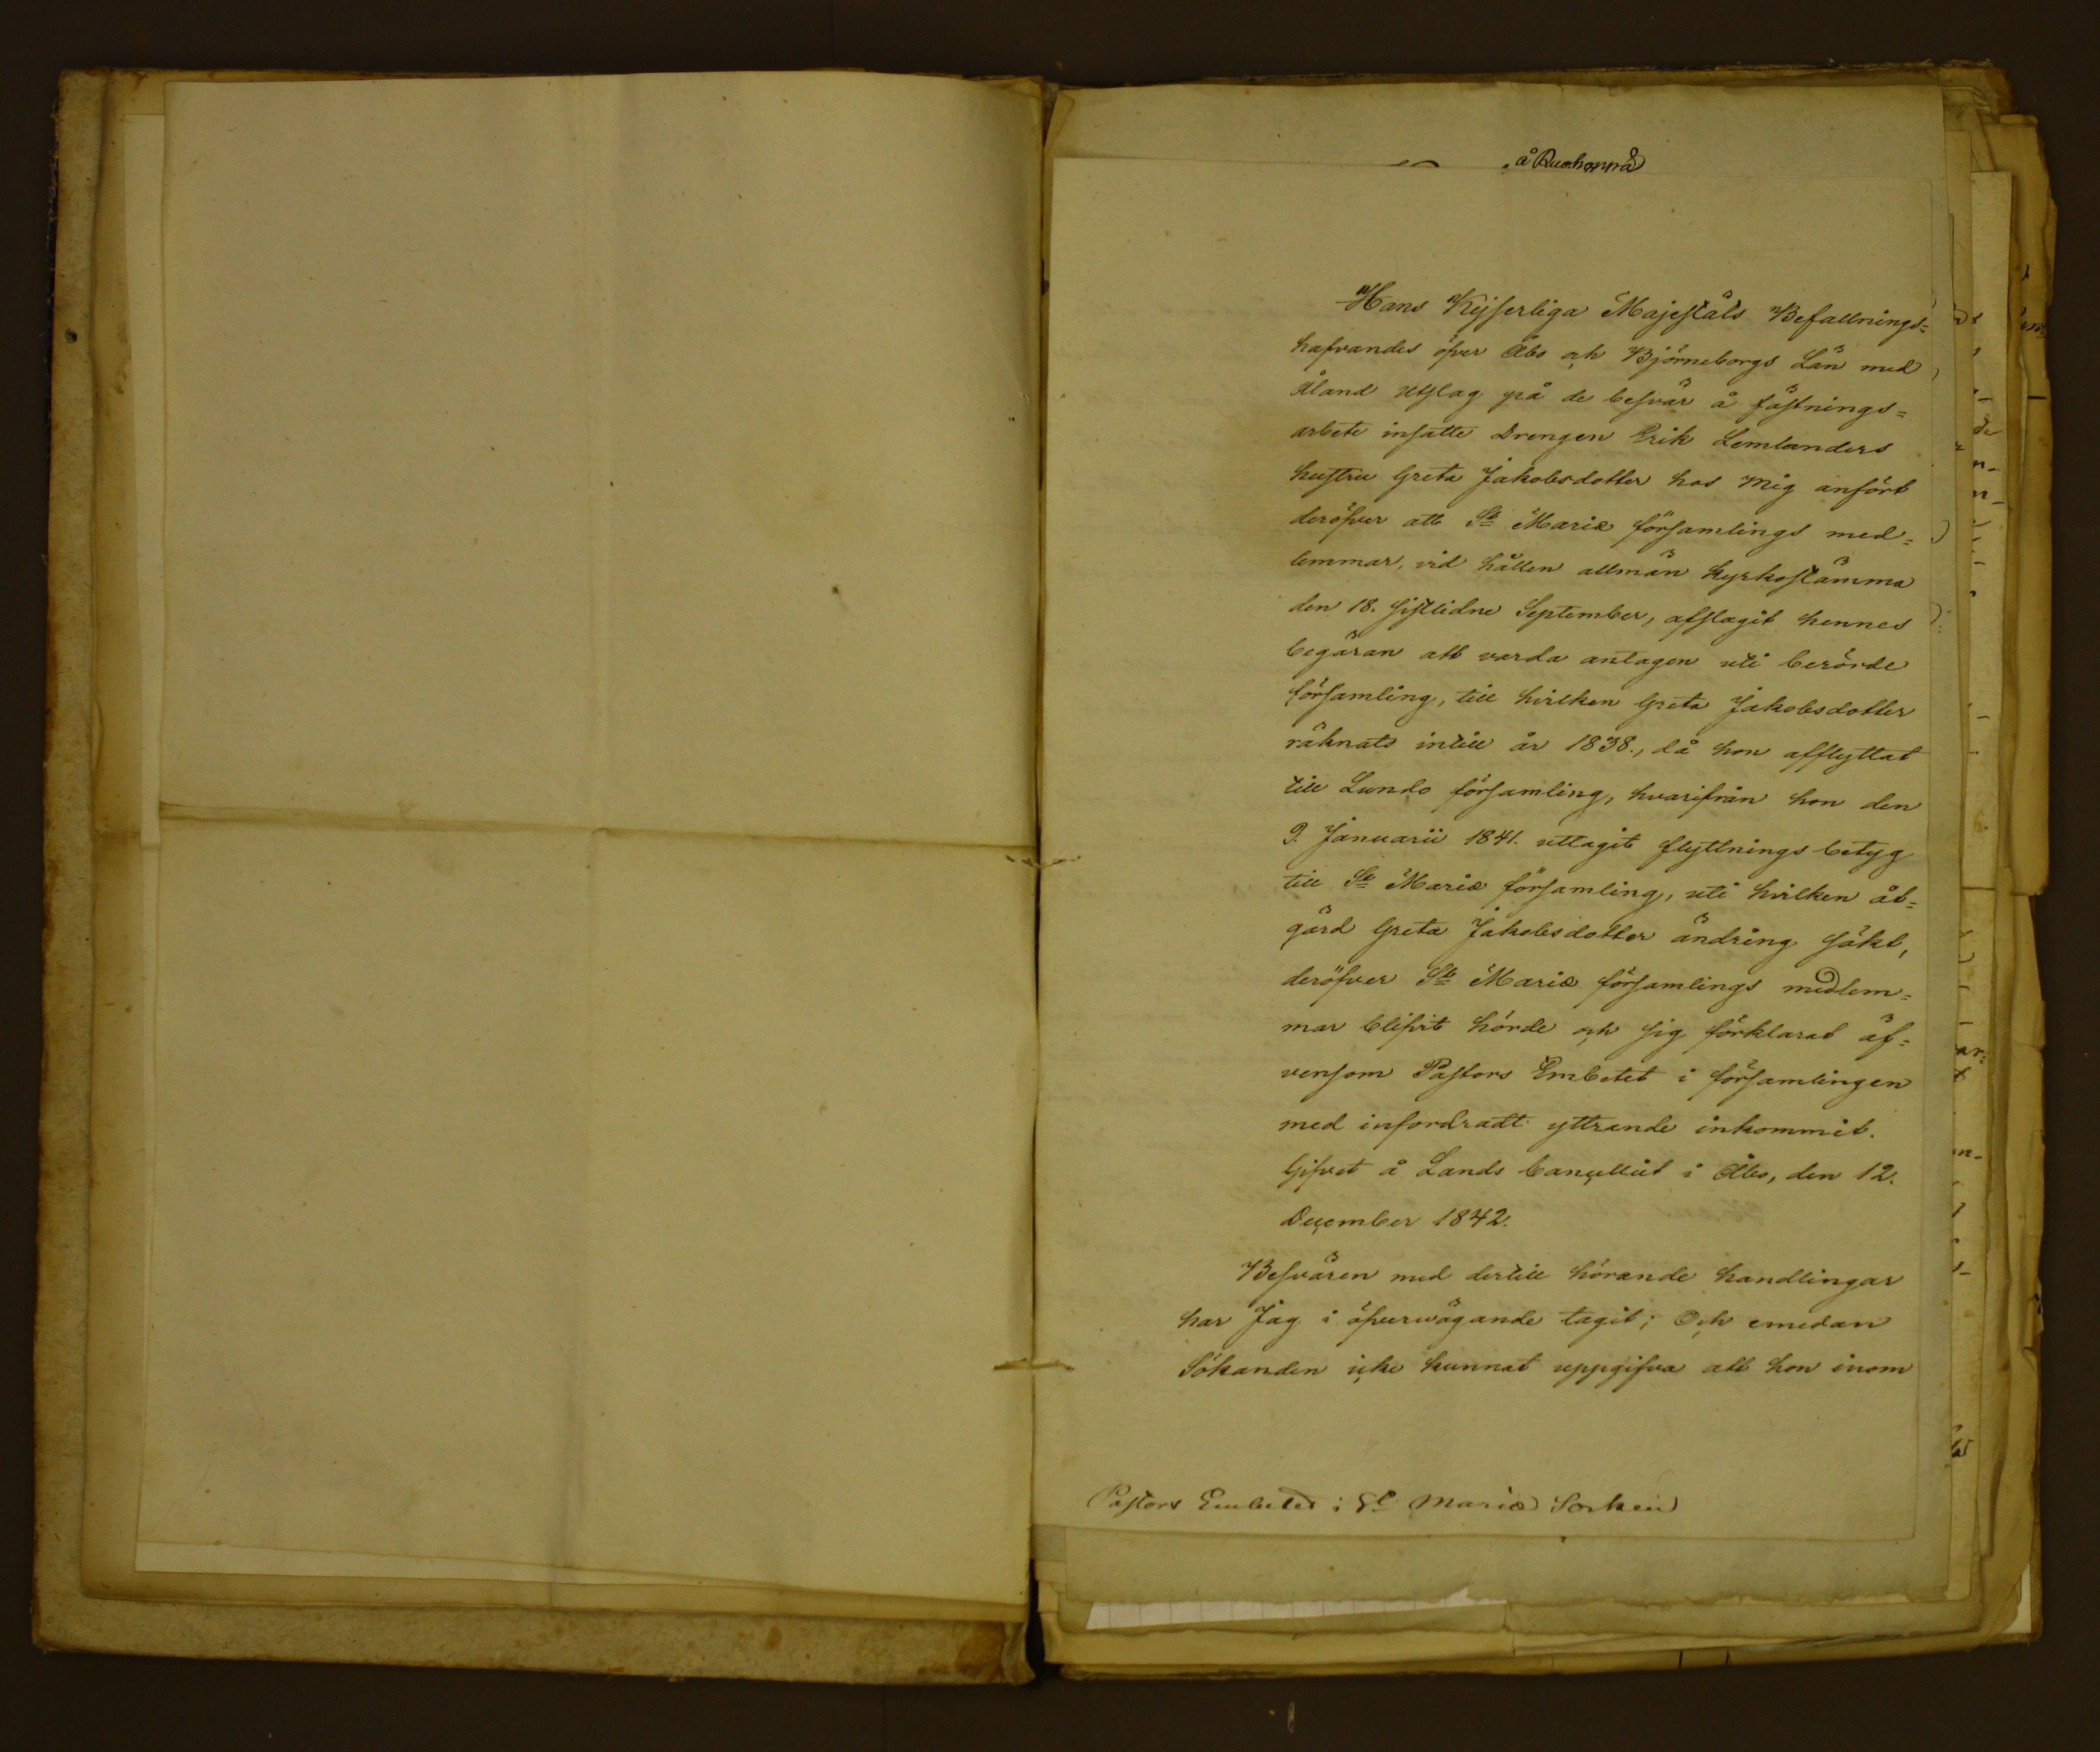 å Ruohonpää
Hans Kejserliga Majestäts Befallnings=
hafvandes öfver Åbo och Björneborgs Län med
Åland Utslag på de besvär å fästnings=
arbete insatte Drengen Erik Lemlanders
hustru Greta Jakobsdotter hos mig anfört
deröfver att S:t Mariæ församlings med=
lemmar, vid hållen allmän kyrkostämma
den 18. sistlidne September, afslagit hennes
begäran att varda antagen uti berörde
församling, till hvilken Greta Jakobsdotter
räknats intill år 1838., då hon afflyttat
till Lundo församling, hvarifrån hon den
9. Januarii 1841. uttagit flyttnings betyg
till S:t Mariæ församling, uti hvilken åt=
gärd Greta Jakobsdotter ändring sökt,
deröfver S:t Mariæ församlings medlem=
mar blifvit hörde och sig förklarat äf=
vensom Pastors Embetet i församlingen
med infordradt yttrande inkommit.
Gifvet å Lands Cancelliet i Åbo, den 12.
December 1842.
Besvären med dertill hörande handlingar
har Jag i öfvervägande tagit; Och emedan
Sökanden icke kunnat uppgifva att hon inom
Pastors Embetet i S:t Mariæ Socken